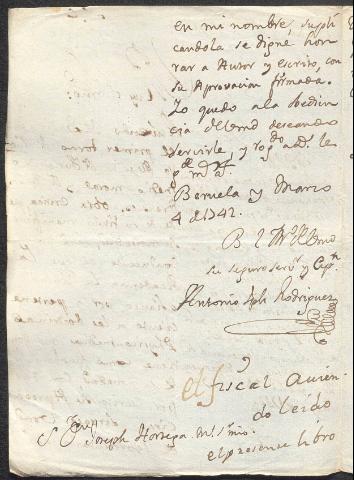 en mi nombre, supli
candola se digne hon
rar a Autor y escrito, con
su Aprovacion firmada.
Yo quedo a la obedien
cia de Vmd deseando
servirle y rog.do a Ds. le
g.de m.s a.s
Beruela y Marzo
4 de 1742.
B L M de Vmd
su seguro ser.r y Cap.n
Antonio Jph Rodriguez
el fiscal avien
do leido
el presente libro
S.r D.n Joseph Hortega mi s.mio.